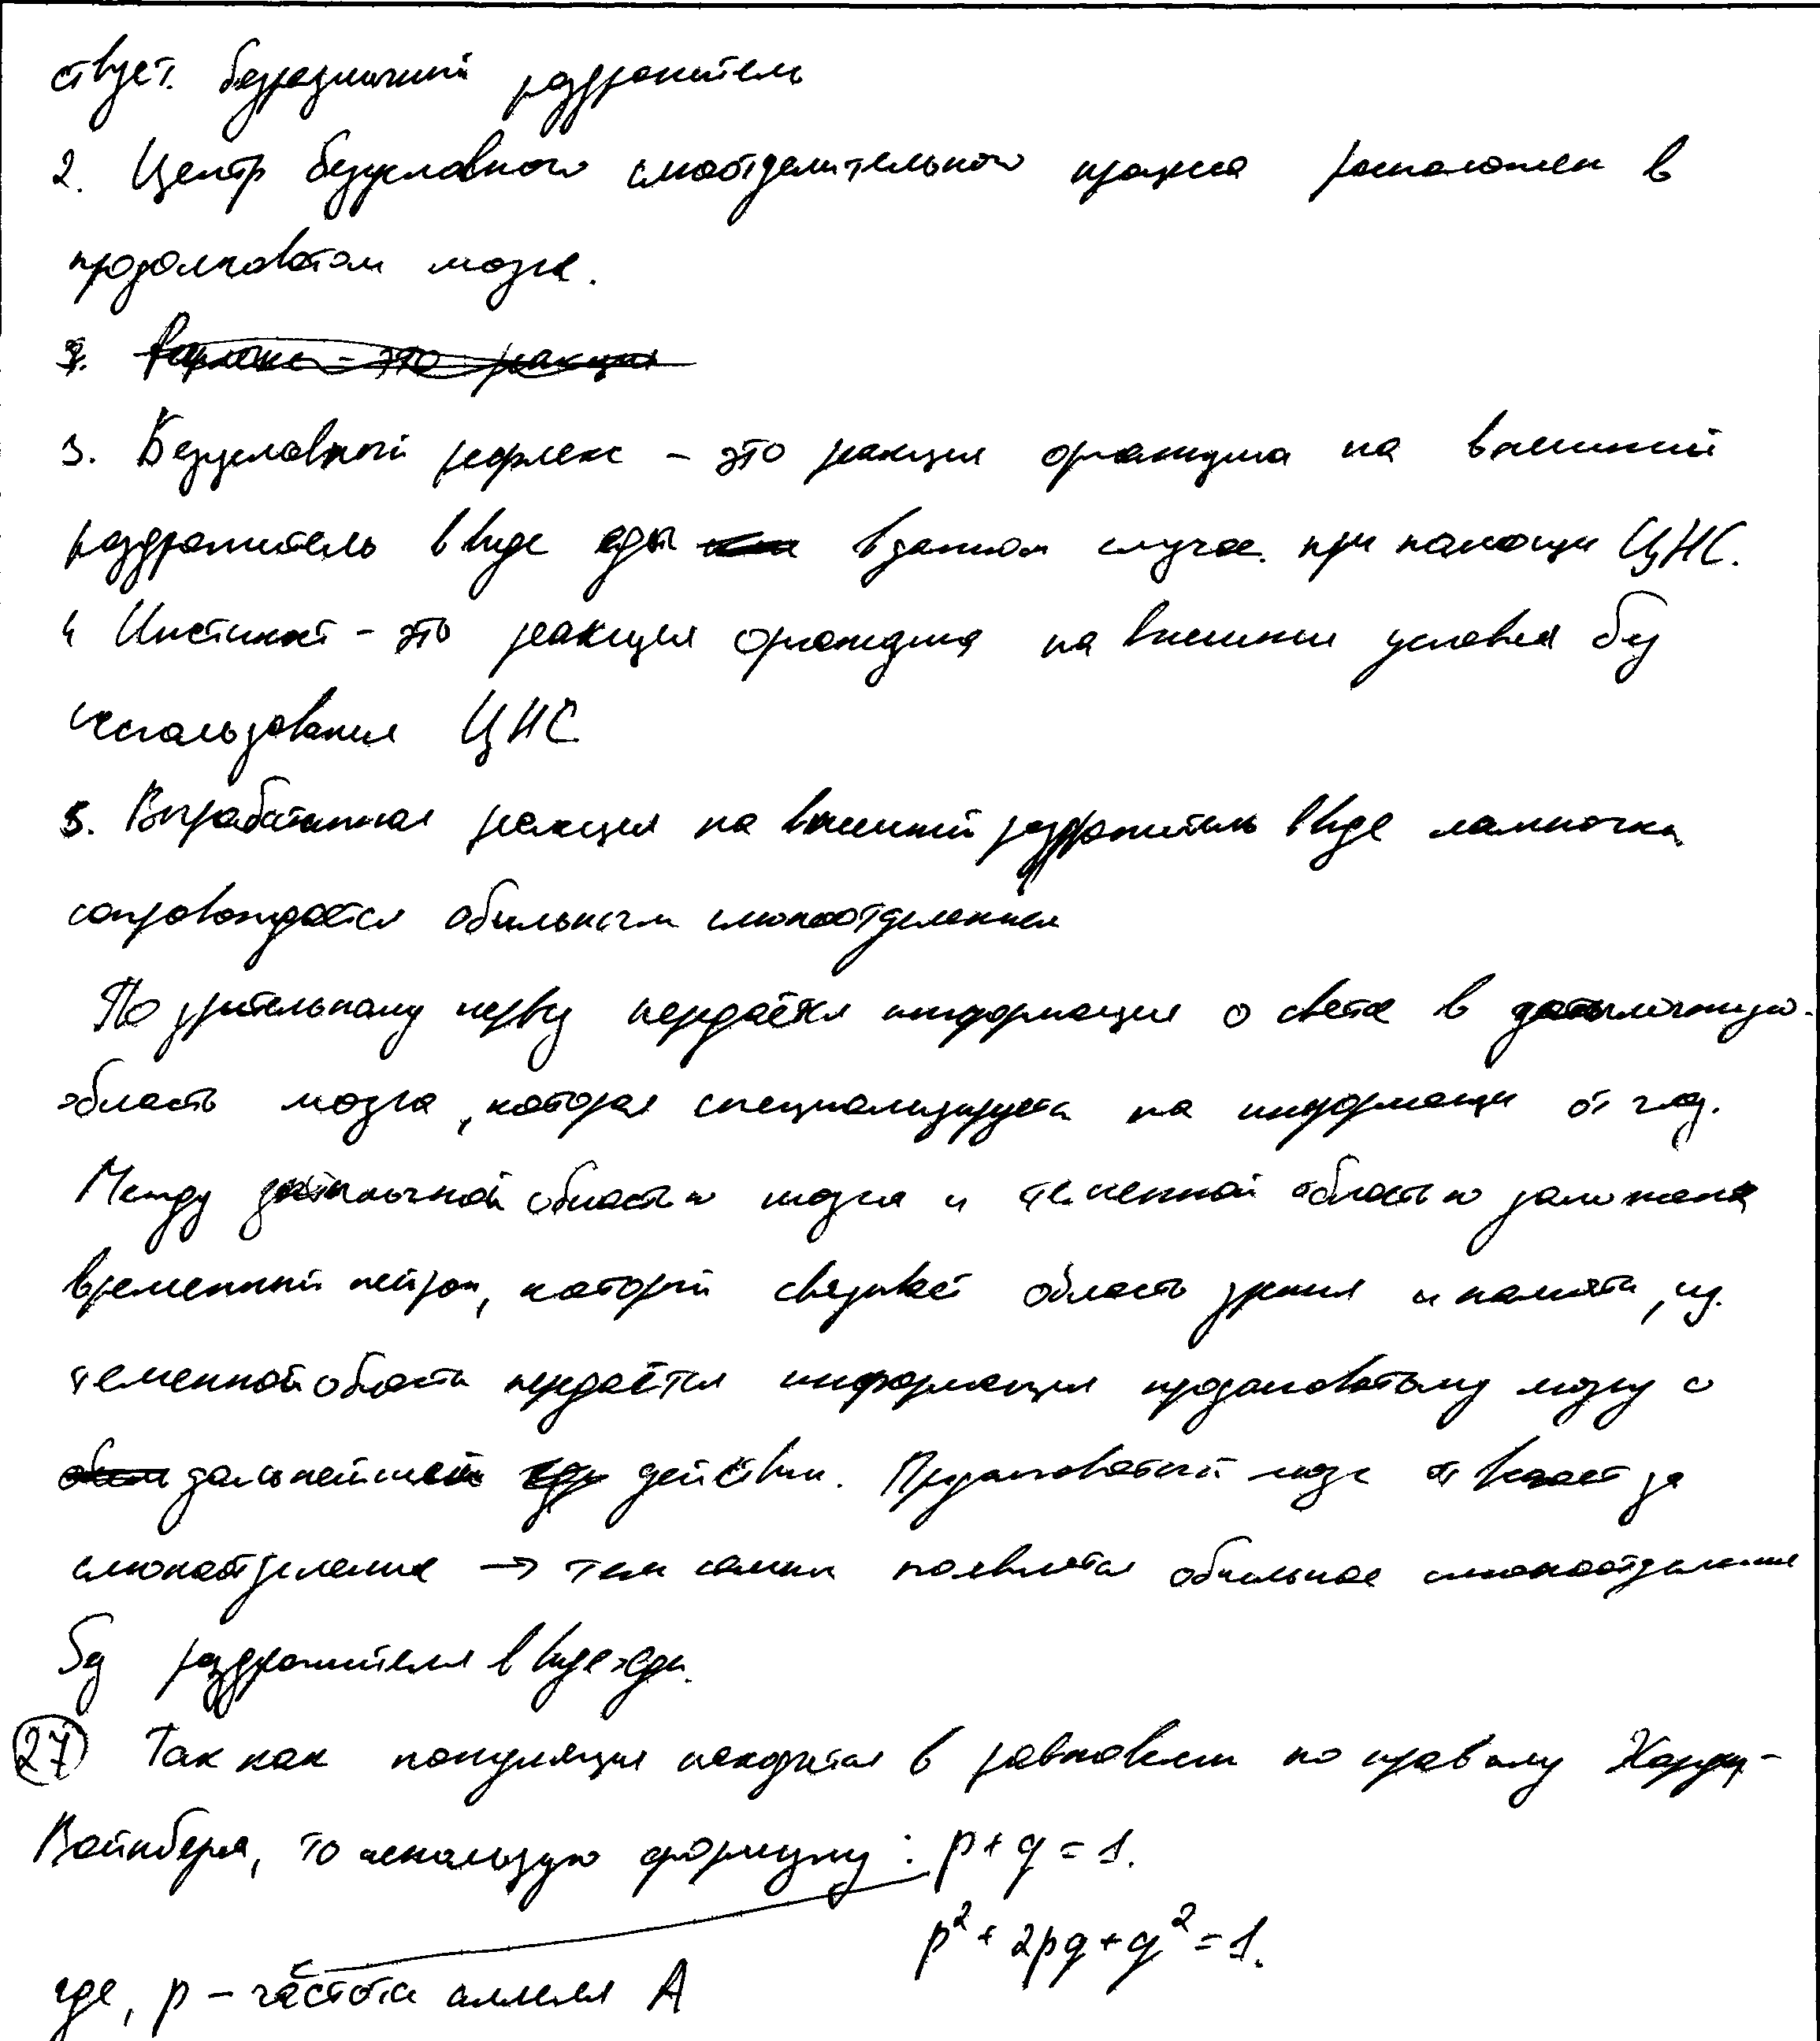 ствует. безразличный раздражитель
2. Центр безусловного слюоотделительного центра расположен в
продолговатом мозге.
3. Безусловный рефлекс – это реакция организма на внешний
раздражитель в виде еды в данном случае. при помощи ЦНС.
4 Инстинкт – это реакция организма на внешние условия без
использования ЦНС
5. Выработанная реакция на внешний раздражитель в виде лампочки
сопровождается обильным слюноотделением
По зрительному нерву передаётся информация о свете в затылочную
область мозга, которая специализируется на информации от глаз.
Между затылочной областью мозга и теменной областью заложена
временный нейрон, который связывает область зрения и памяти, из
теменной области передаётся информация продолговатому мозгу о
дальнейшем действии. Продолговатый мозг отвечает за
слюноотделение → тем самым появляется обильное слюноотделение
без раздражителя в виде еды.
27 Так как популяция находится в равновесии по правилу Харди-
Вайнберга, то использую формулу: p + q = 1.
p² + 2pq + q² = 1.
где, p – частота аллеля A